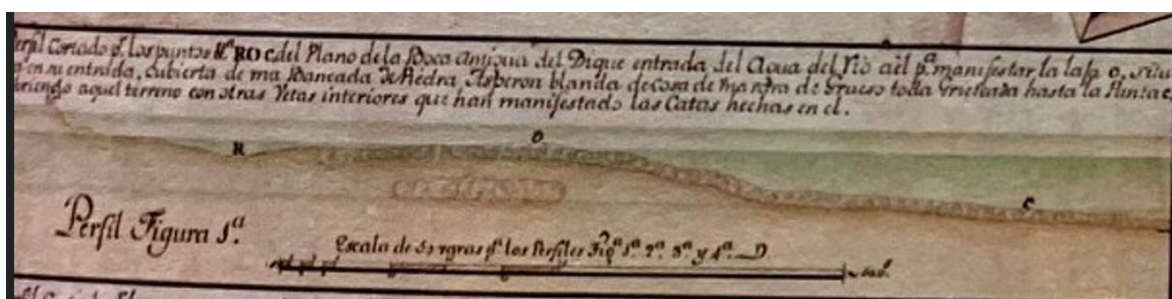 Perfil Cortado pr. los puntos N.a ROC del Plano de la Boca Antigua del Dique entrada del Agua del Rio a èl pa. manifestar la laja O, situ
en su entrada, cubierta de una Bancada de Piedra Asperon blanda de cosa de grueso toda hasta la Punta C,
aquel terreno con otras Vetas interiores que han manifestado las Catas hechas en el.
R
O
C
Perfil Figura 1ª.
Escala de 50 pª. los Perfiles Figª 1ª. 2ª. 3ª. y 4ª.